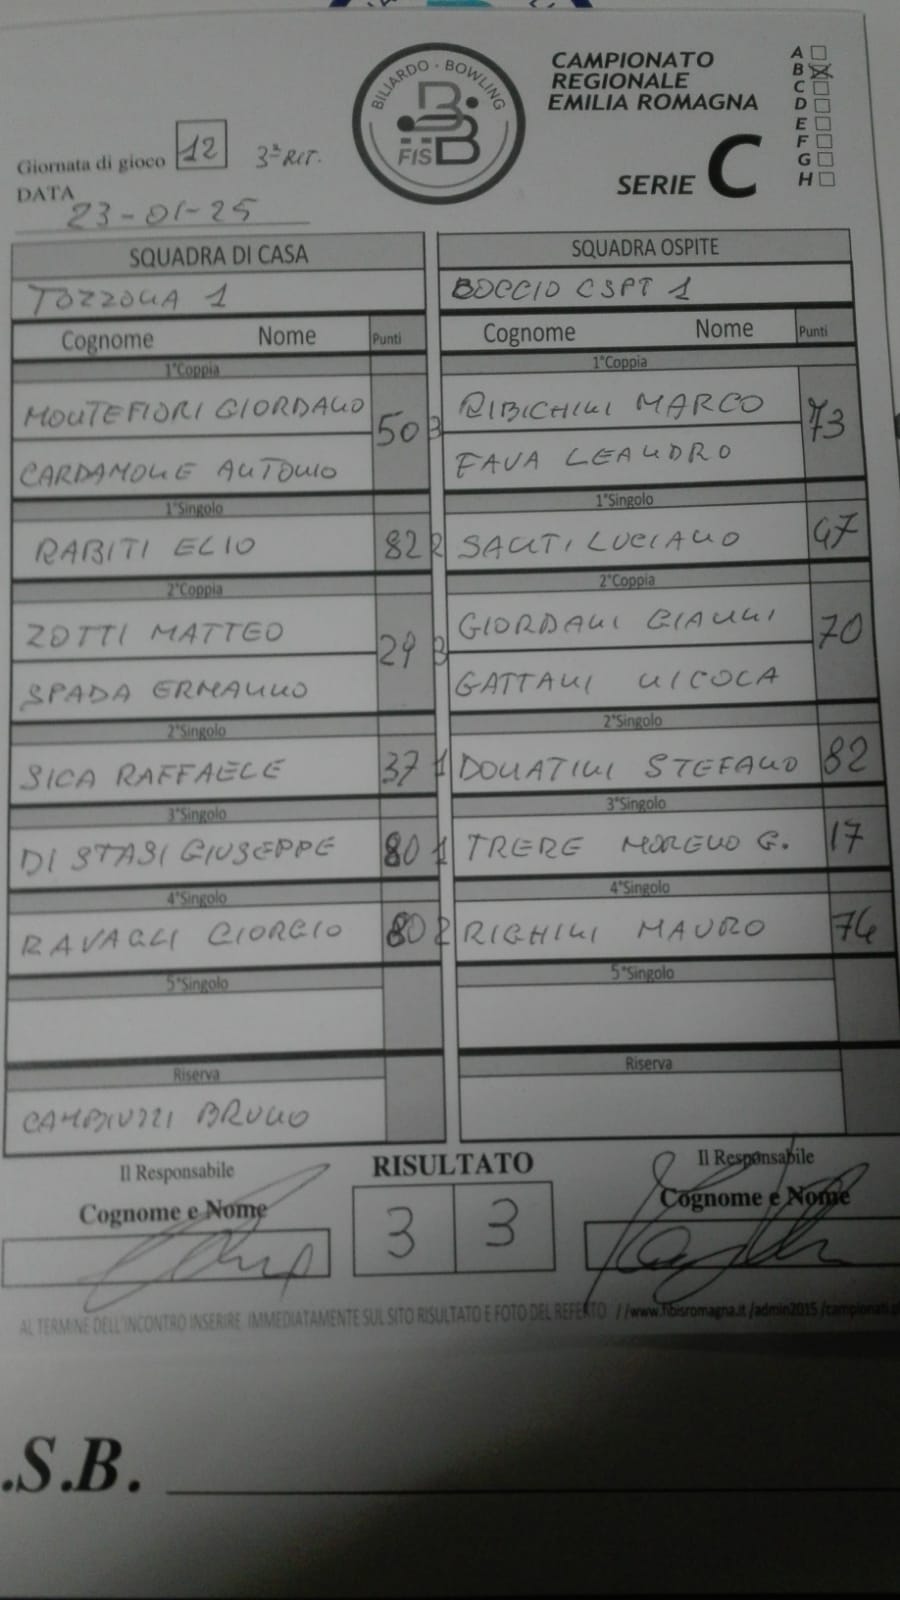 BILIARDO · BOWLING
FISBB
CAMPIONATO
REGIONALE
EMILIA ROMAGNA
SERIE C
A
B
C
D
E
F
G
H
Giornata di gioco 12 3ª RIT.
DATA
23-01-25
SQUADRA DI CASA SQUADRA OSPITE
TOZZONA 1 BOCCIO CSPT 1
Cognome Nome Punti Cognome Nome Punti
1°Coppia 1°Coppia
MONTEFIORI GIORDANO 50 3 RIBICHINI MARCO 73
CARDAMONE ANTONIO FAVA LEANDRO
1°Singolo 1°Singolo
RABITI ELIO 82 2 SANTI LUCIANO 47
2°Coppia 2°Coppia
ZOTTI MATTEO 29 3 GIORDANI GIANNI 70
SPADA ERMANNO GATTANI NICOLA
2°Singolo 2°Singolo
SICA RAFFAELE 37 1 DONATINI STEFANO 82
3°Singolo 3°Singolo
DI STASI GIUSEPPE 80 1 TRERE MORENO G. 17
4°Singolo 4°Singolo
RAVAGLI GIORGIO 80 2 RIGHINI MAURO 74
5°Singolo 5°Singolo
Riserva Riserva
BRUNO
Il Responsabile RISULTATO Il Responsabile
Cognome e Nome 3 3 Cognome e Nome
AL TERMINE DELL'INCONTRO INSERIRE IMMEDIATAMENTE SUL SITO RISULTATO E FOTO DEL REFERTO //www.fibisromagna.it/admin2015/campionati.
.S.B.